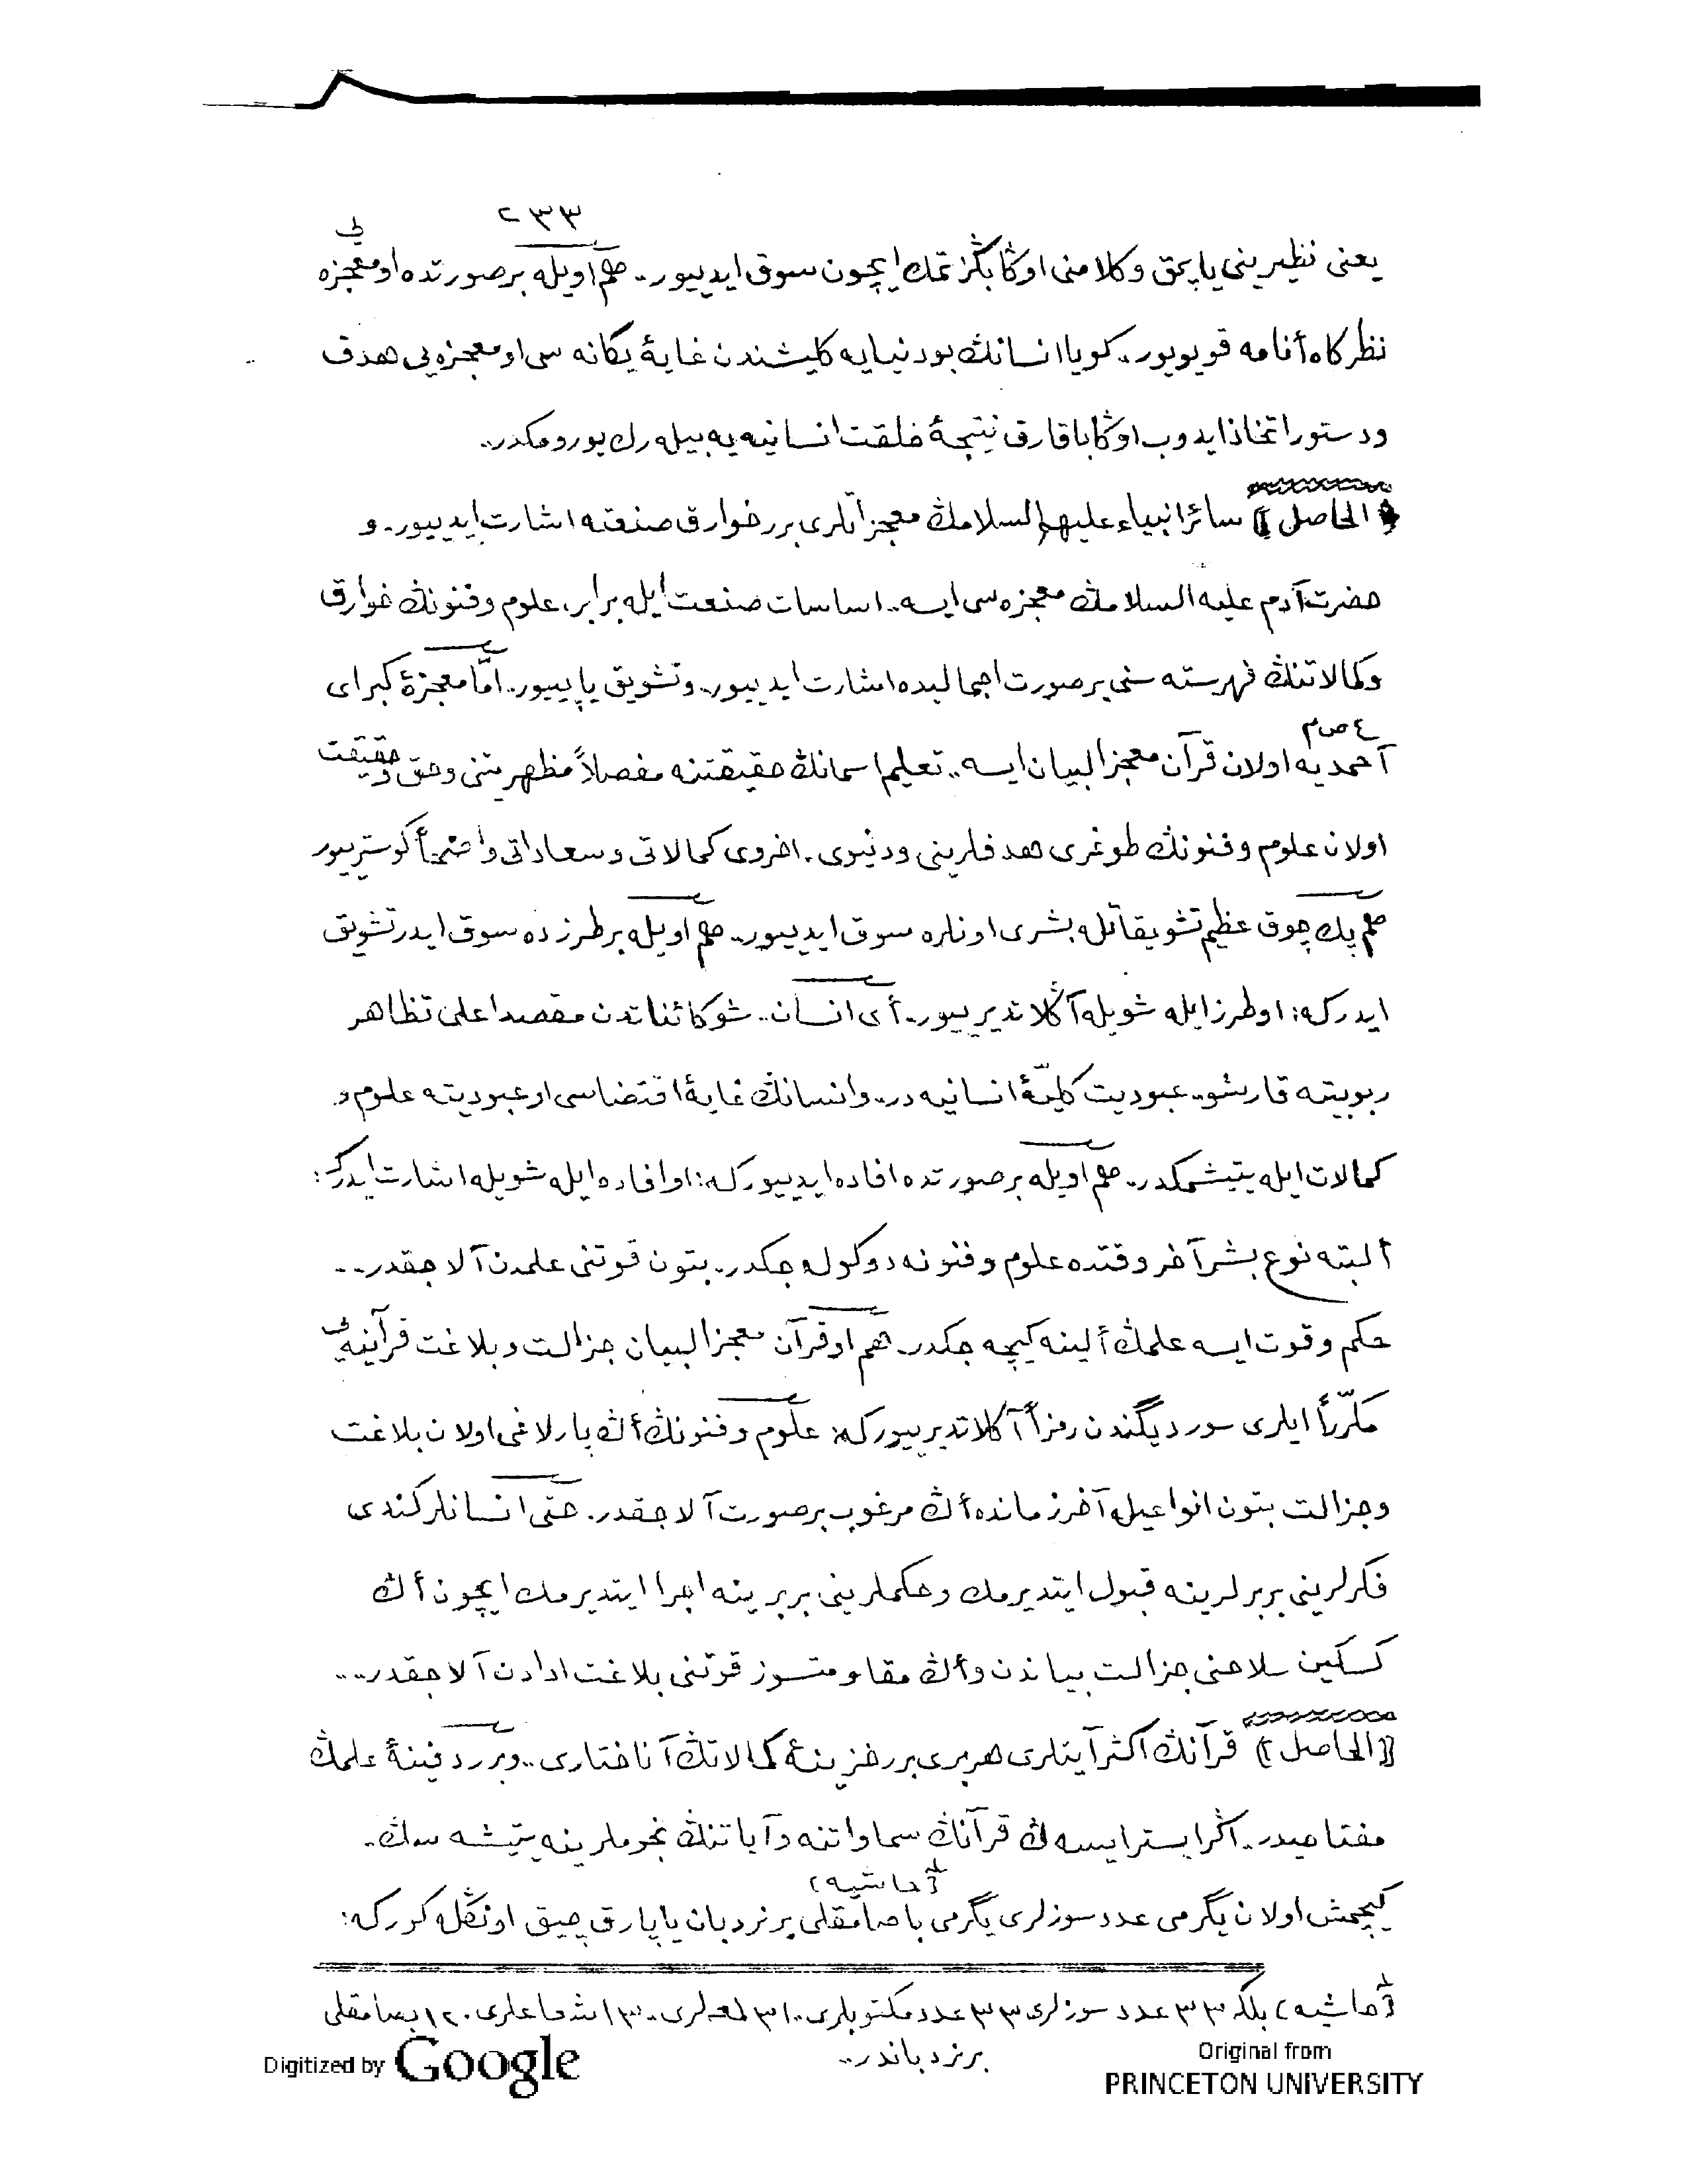 ٢٣٣
يعنى نظيرينى ياپمق وكلامنى اوڭا بڭزتمك ايچون سوق ايدييور.. هم اويله بر صورتده او معجزه يى
نظركاه أنامه قويويور.. كويا انسانڭ بو دنيايه كليشندن غايۀ يكانه سى او معجزه يى هدف
و دستور اتخاذ ايدوب اوڭا باقارق نتيجۀ خلقت انسانيه يه بيله رك يورومكدر..
﴿الحاصل﴾ سائر انبياء عليهم السلامڭ معجزاتلرى برر خوارق صنعته اشارت ايدييور. و
حضرت آدم عليه السلامڭ معجزه سى ايسه.. اساسات صنعت ايله برابر، علوم و فنونڭ خوارق
وكمالاتنڭ فهرسته سنى بر صورت اجماليده اشارت ايدييور.. و تشويق ياپييور.. امّا معجزۀ كبراى
آحمديه ع ص م اولان قرآن معجز البيان ايسه.. تعليم اسمانڭ حقيقتنه مفصلاً مظهريتنى وحق و حقيقت
اولان علوم و فنونڭ طوغرى هدفلرينى و دنيوى. اخروى كمالاتى و سعاداتى واضحاً كوسترييور
هم پك چوق عظيم تشويقاتله بشرى اونلره سوق ايدييور.. هم اويله بر طرزده سوق ايدر تشويق
ايدركه: او طرز ايله شويله آڭلاتديرييور. أى انسان.. شو كائناتدن مقصد اعلى تظاهر
ربوبيته قارشو.. عبوديت كليّۀ انسانيه در.. و انسانڭ غايۀ اقتضاسى او عبوديته علوم و
كمالات ايله يتيشمكدر.. هم اويله بر صورتده افاده ايدييوركه: او افاده ايله شويله اشارت ايدركه:
ألبته نوع بشر آخر وقتده علوم و فنونه دوكوله جكدر.. بتون قوتنى علمدن آلاجقدر..
حكم و قوت ايسه علمڭ ألينه كيچه جكدر. هم او قرآن معجز البيان جزالت و بلاغت قرآنيه يى
مكرّراً ايلرى سورديگندن رمزاً آڭلاتديرييوركه: علوم و فنونڭ أڭ پارلاغى اولان بلاغت
وجزالت بتون انواعيله آخر زمانده أڭ مرغوب بر صورت آلاجقدر. حتى انسانلر كندى
فكرلرينى بربرلرينه قبول ايتديرمك و حكملرينى بربرينه اجرا ايتديرمك ايچون أڭ
كسكين سلاحنى جزالت بياندن و أڭ مقاومتسوز قوتنى بلاغت ادادن آلاجقدر...
﴿الحاصل﴾ قرآنڭ اكثر آيتلرى هر برى برر خزينۀ كمالاتڭ آناختارى.. و برر دفينۀ علمڭ
مفتاحيدر.. اڭر ايسترايسه ڭ قرآنڭ سماواتنه و آياتنڭ نجوملرينه يتيشه سڭ.
كچمش اولان يگرمى عدد سوزلرى يگرمى باصامقلى (حاشيه) بر نردبان ياپارق چيق اونڭله كوركه:
(حاشيه) بلكه ٣٣ عدد سوزلرى ٣٣ عدد مكتوبلرى.. ٣١ لمعه لرى.. ١٣ شعاعلرى. ١٢٠ بصامقلى
بر نردباندر..
Digitized by Google
Original from
PRINCETON UNIVERSITY